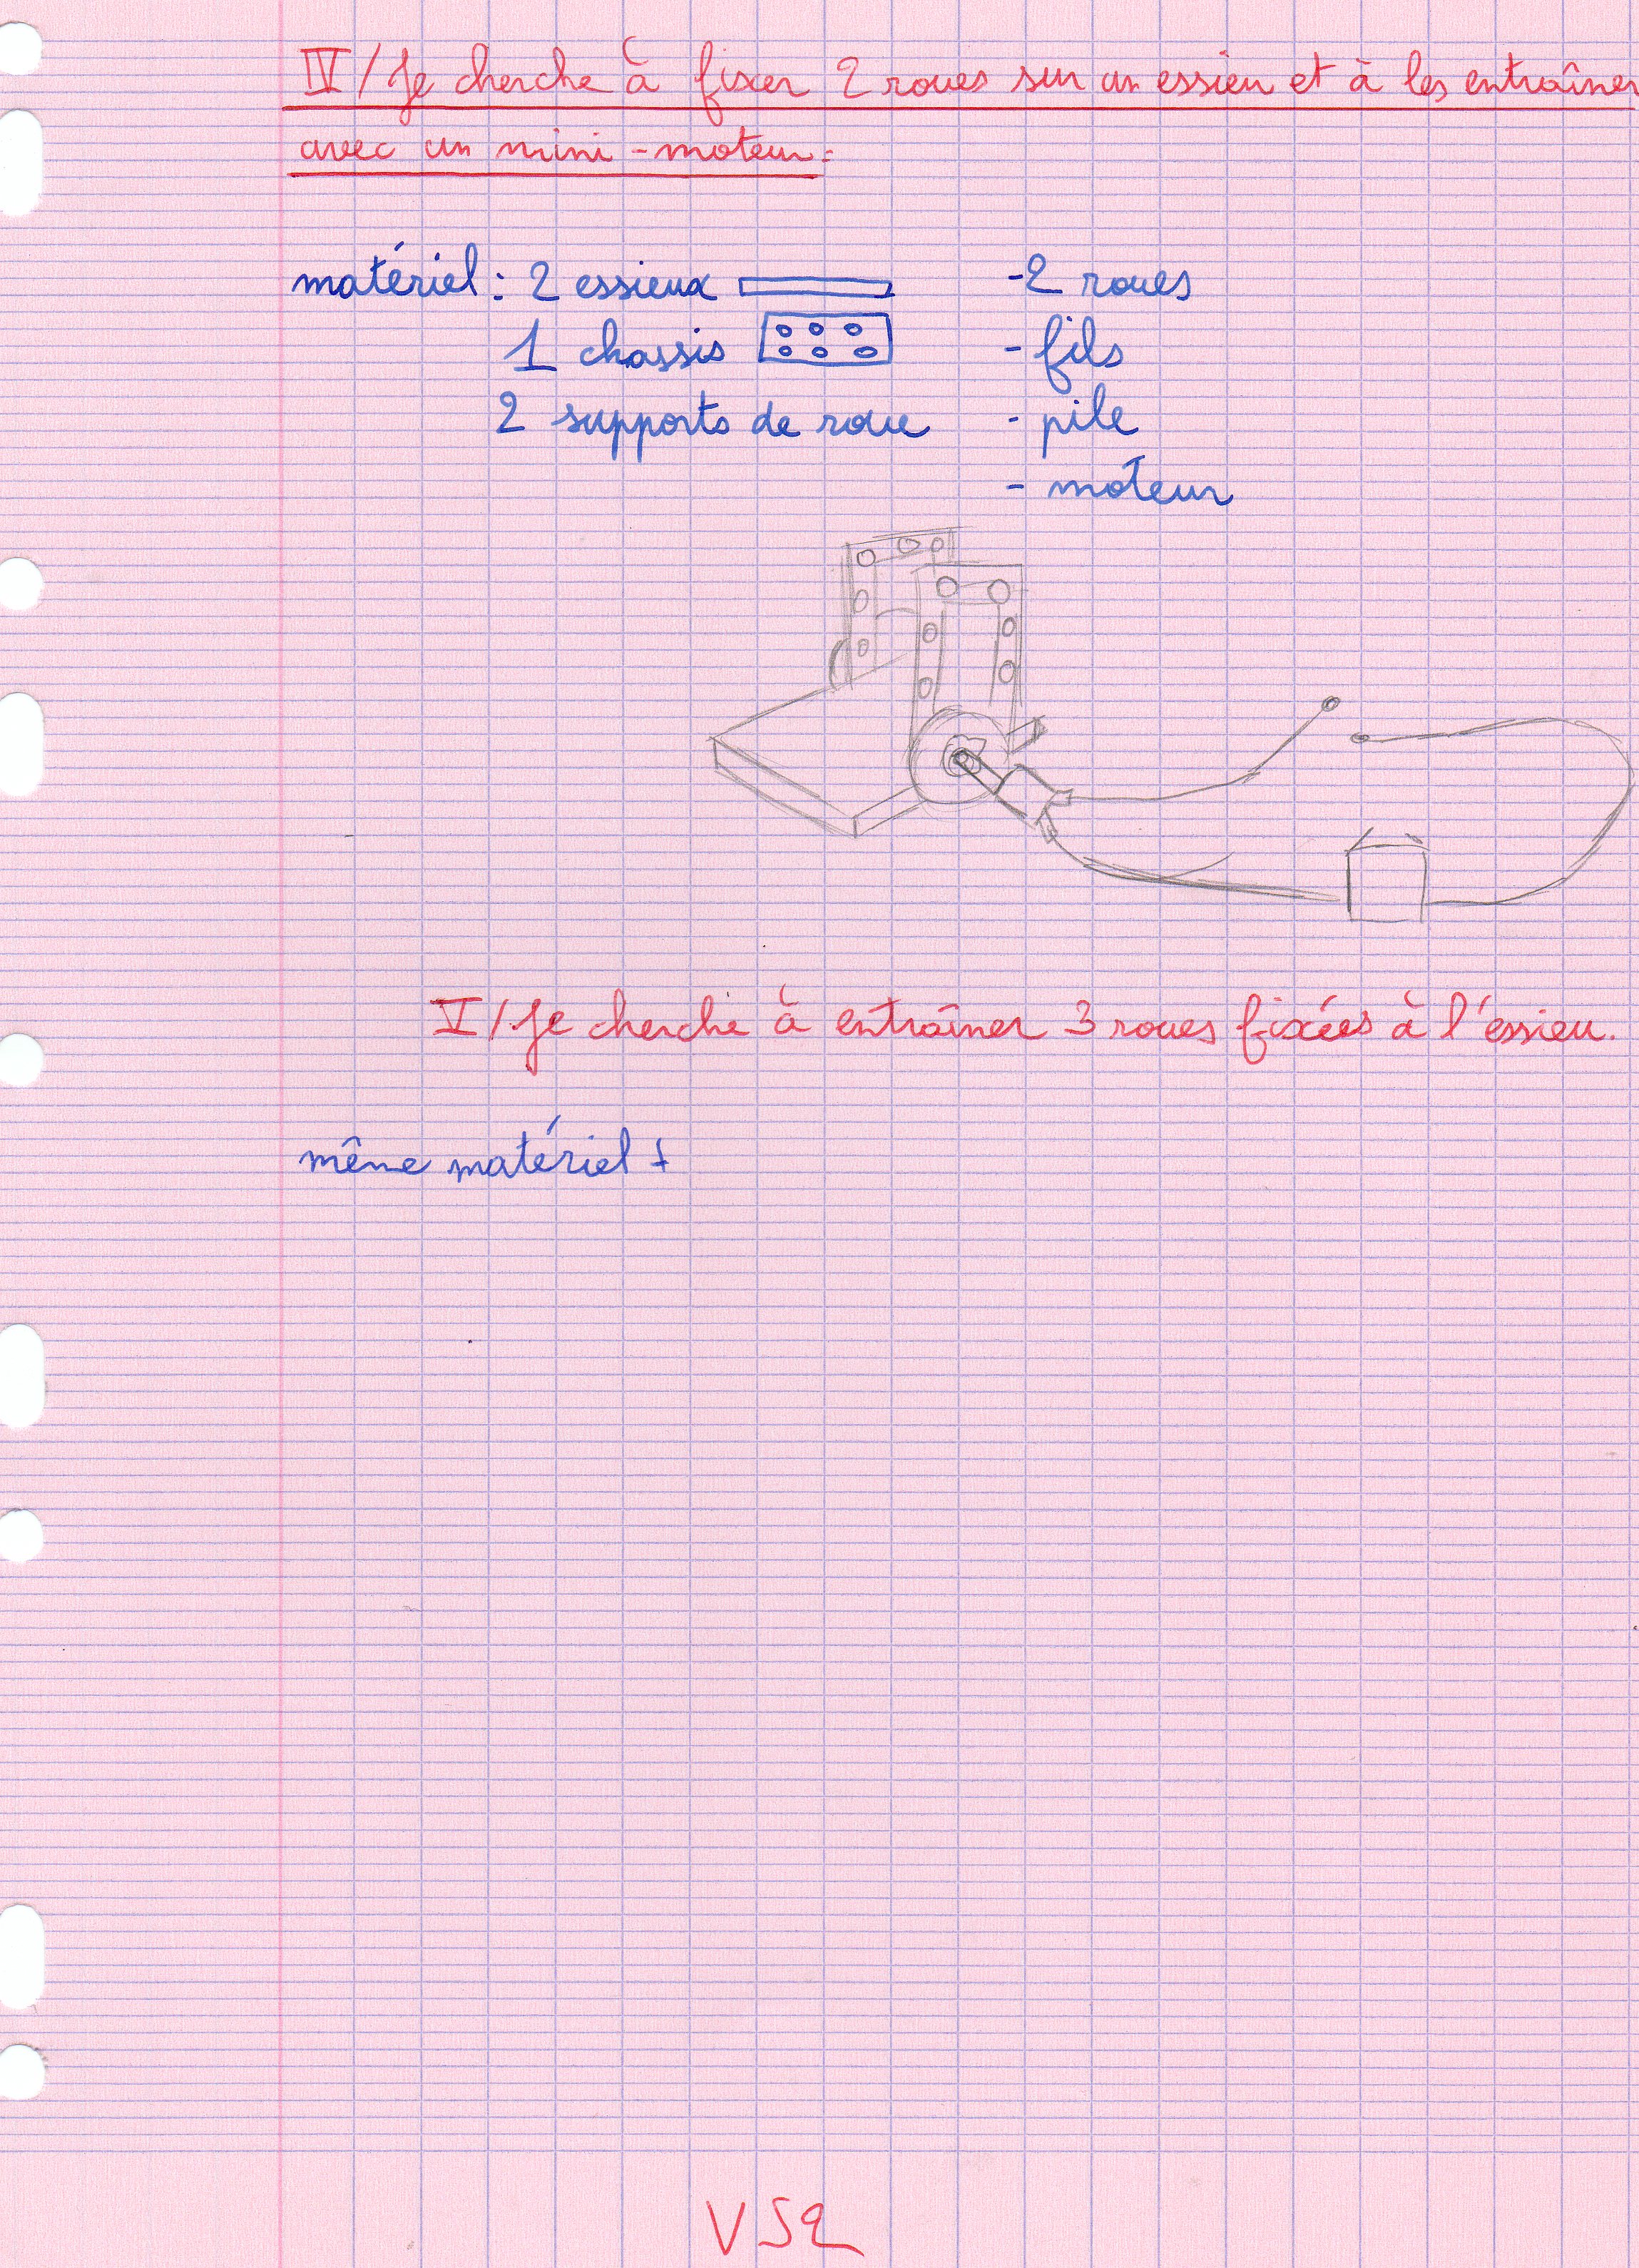 IV/ Je cherche à fixer 2 roues sur un essieu et à les entraîner
avec un mini-moteur.
matériel : 2 essieux - 2 roues
1 chassis - fils
2 supports de roue - pile
- moteur
V/ Je cherche à entraîner 3 roues fixées à l'essieu.
même matériel +
VS2